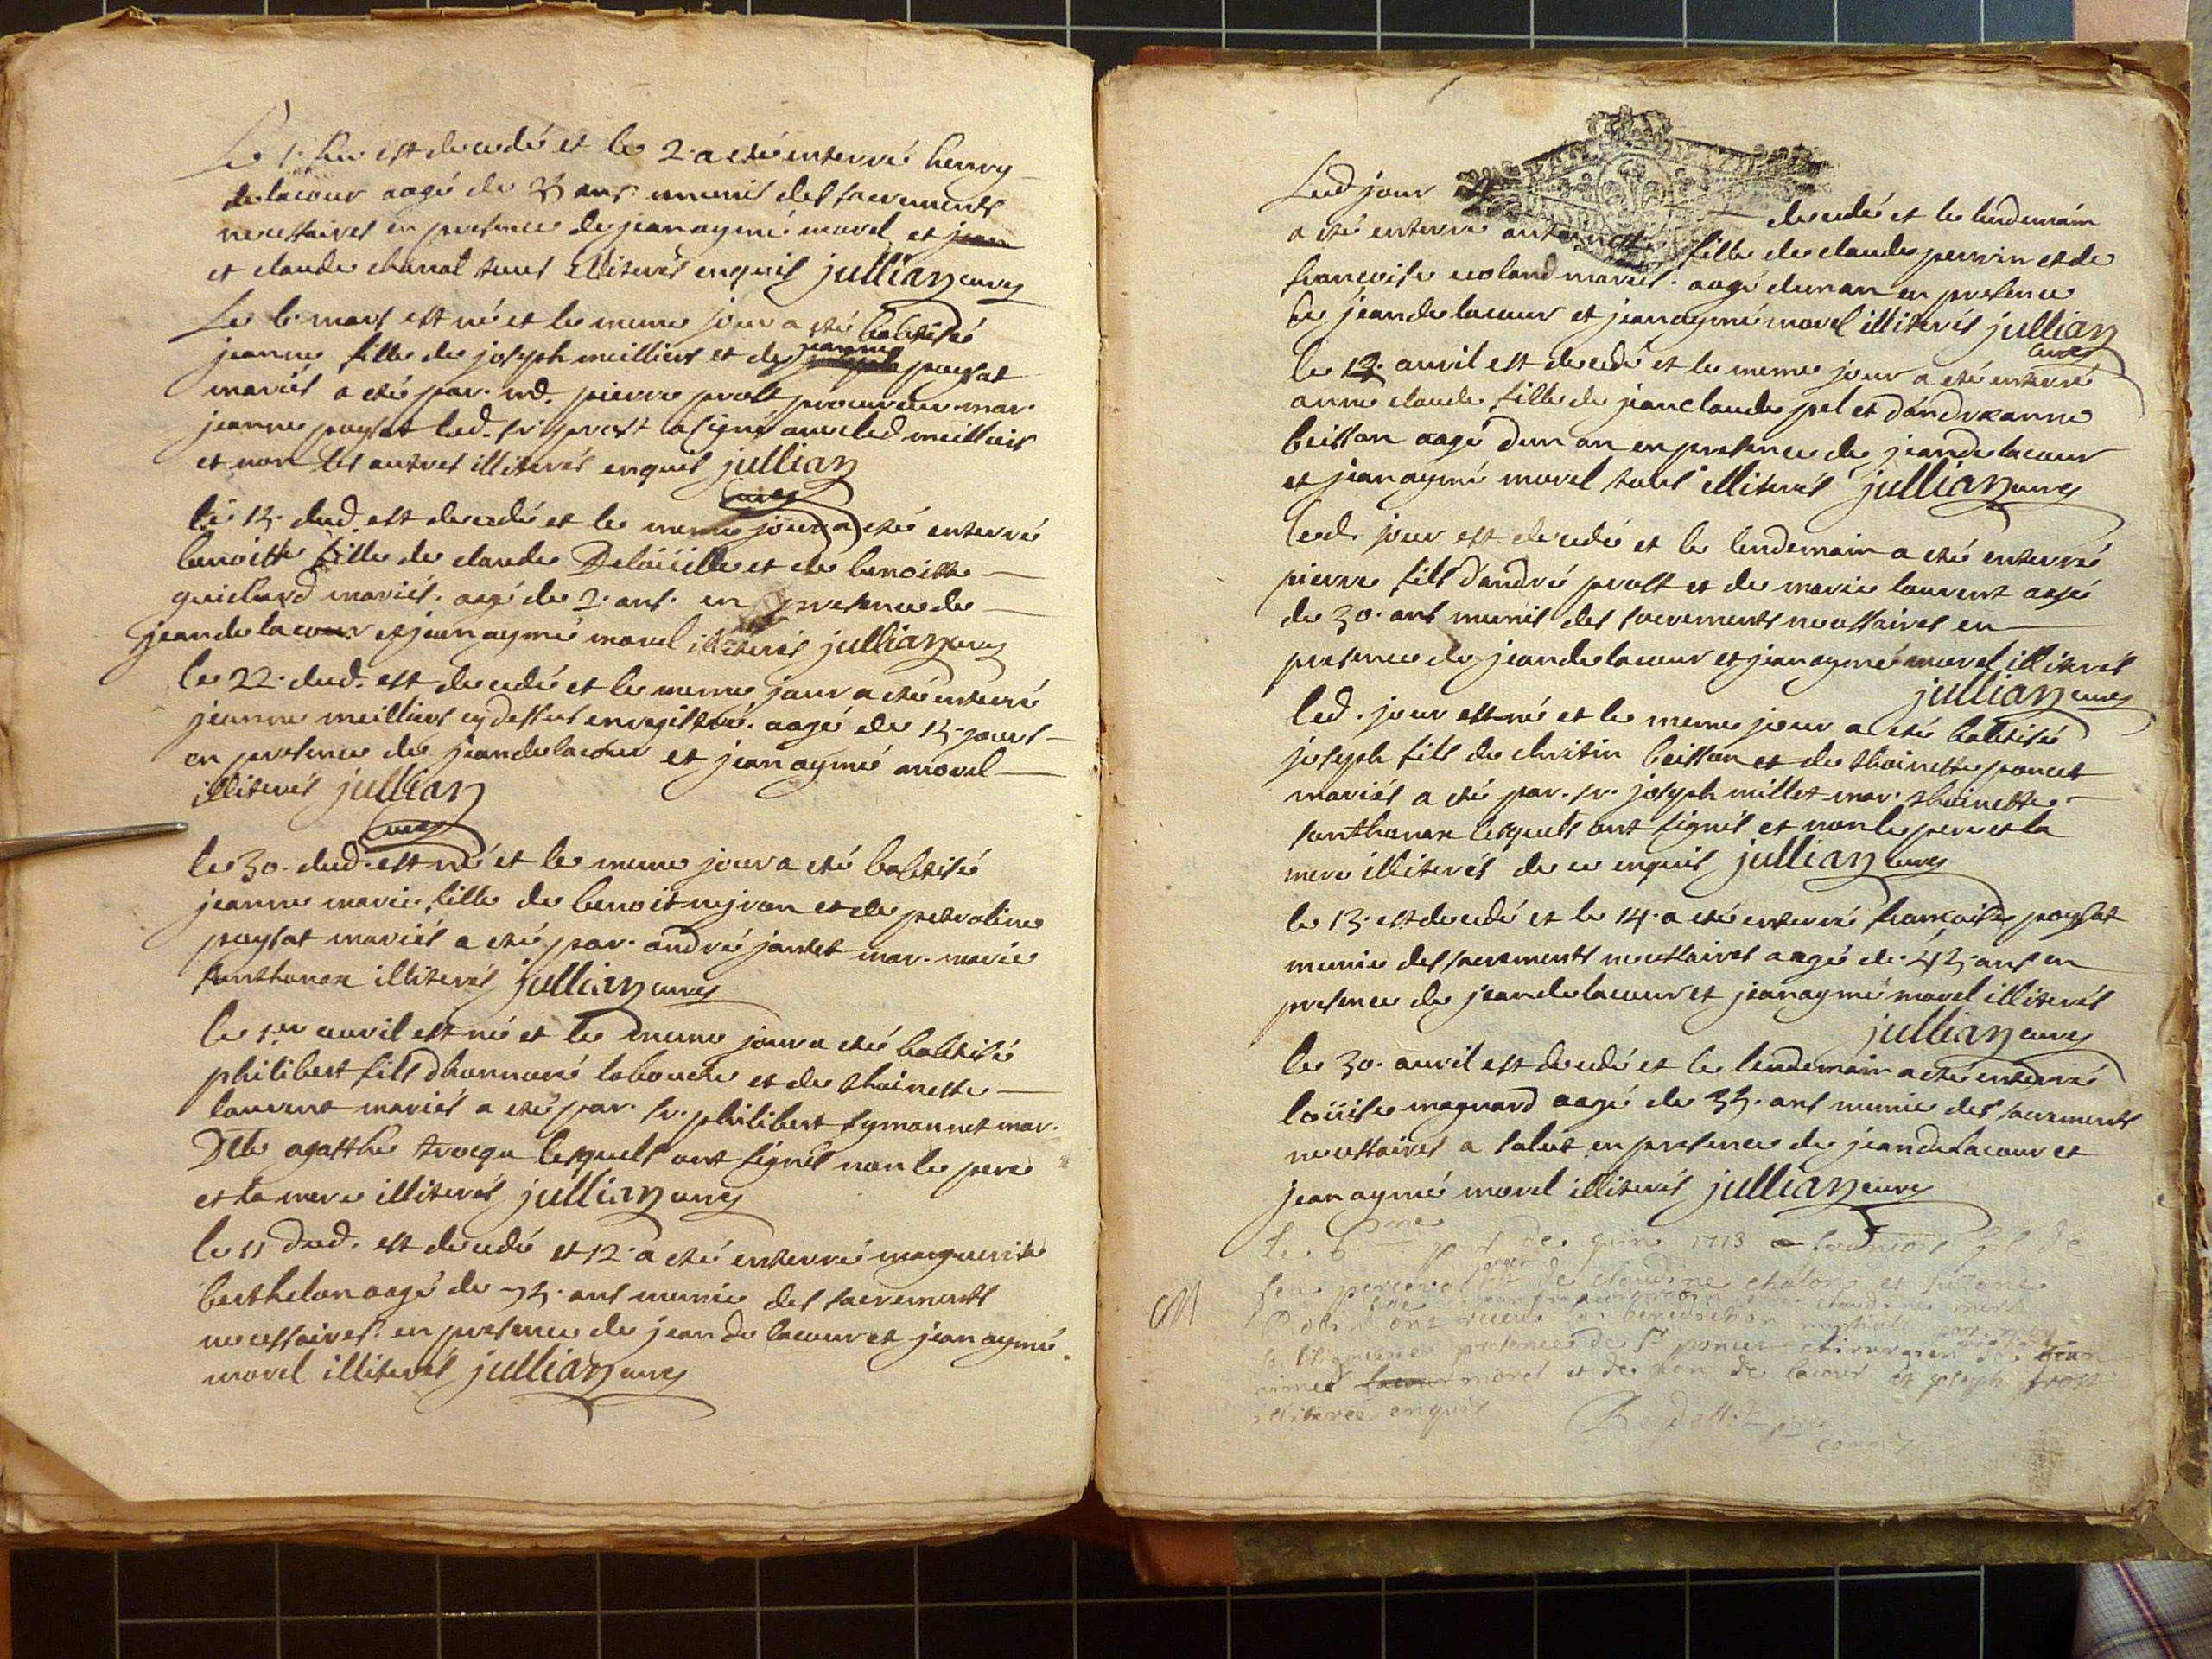 est decedé et le 2. a eté enterré henry
delacour aagé de ans. munis des sacrements
necessaires en presence de jean aymé morel et jean
et claude chanal tous illiterés enquis jullian curé
Le mars est né et le meme jour a eté babtisé
jeanne fille de joseph meilliers et de jeanne paysat
mariés a eté par. md. pierre prost procureur mar.
jeanne paysat led. sr. prost a signé avec led meilliers
et non les autres illiterés enquis jullian
curé
le dud. est decedé et le meme jour a eté enterré
benoitte fille de claude Deloüille et de benoitte
guichard mariés. aagé de 2. ans. en presence de
jean de lacour et jean aymé morel illiterés jullian curé
le 22. dud. est decedé et le meme jour a eté enterré
jeanne meilliers cydessus enregistré. aagé de jours
en presence de jean delacour et jean aymé morel
illiterés jullian
curé
le 30. dud. est né et le meme jour a eté babtisé
jeanne marie fille de benoit et de petroline
paysat mariés a eté par. andré jantet mar. marie
santhonax illiterés jullian curé
le 1er avril est né et le meme jour a eté babtisé
philibert fils dhonnoré labouche et de thoinette
laurent mariés a eté par. sr. philibert symonnet mar.
Dlle agatthe trocqu lesquels ont signés non le pere
et la mere illiterés jullian curé
le 11 dud. est decedé et 12. a eté enterré marguerite
berthelon aagé de ans munie des sacrements
necessaires. en presence de jean de lacour et jean aymé
morel illiterés jullian curé
Led jour decedé et le lendemain
a eté enterré fille de claude perrin et de
francoise mariés. aagé dun an en presence
de jean de lacour et jean aymé morel illiterés jullian
curé
le avril est decedé et le meme jour a eté enterré
anne claude fille de jean claude pel et dandreanne
beisson aagé dun an en presence de jean de lacour
et jean aymé morel tous illiterés jullian curé
led. jour est decedé et le lendemain a eté enterré
pierre fils d'andré prost et de marie laurent aagé
de 30. ans munis des sacrements necessaires en
presence de jean de lacour et jean aymé morel illiterés
jullian curé
led. jour est né et le meme jour a eté babtisé
joseph fils de christin beisson et de thoinette poncet
mariés a eté par. sr. joseph millet mar. thoinette
santhonax lesquels ont signés et non le pere et la
mere illiterés de ce enquis jullian curé
le 13. est decedé et le 14. a eté enterré francoise paysat
munie des sacrements necessaires aagé de ans en
presence de jean de lacour et jean aymé morel illiterés
jullian curé
le 30. avril est decedé et le lendemain a eté enterré
loüise magnard aagé de ans munie des sacrements
necessaires a salut en presence de jean de lacour et
jean aymé morel illiterés jullian curé
Le 6me jour de juin 1713 francois fil de
feu de claudine chalon et suzane
ont receu la benediction nuptiale
presence de Sr poncet chirurgien de
aimé morel et de jean de lacour et joseph prost
illiteré enquis